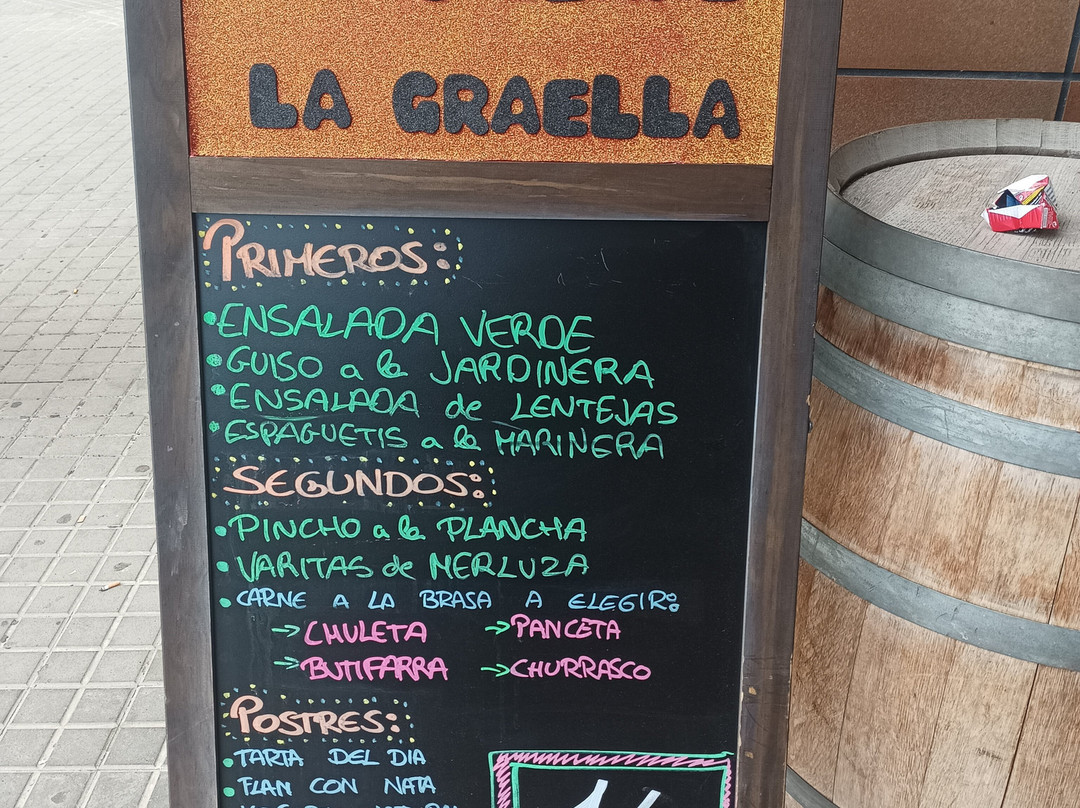 LA GRAELLA
PRIMEROS:
• ENSALADA VERDE
• GUISO a la JARDINERA
• ENSALADA de LENTEJAS
• ESPAGUETIS a la MARINERA
SEGUNDOS:
• PINCHO a la PLANCHA
• VARITAS de MERLUZA
• CARNE A LA BRASA A ELEGIR:
→ CHULETA → PANCETA
→ BUTIFARRA → CHURRASCO
POSTRES:
• TARTA DEL DIA
• FLAN CON NATA